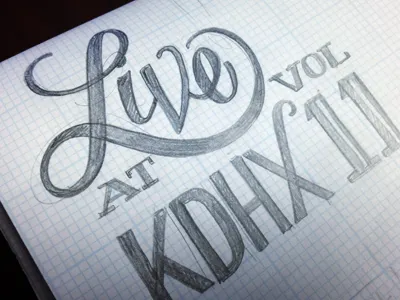 Live
AT
VOL
KDHX 11